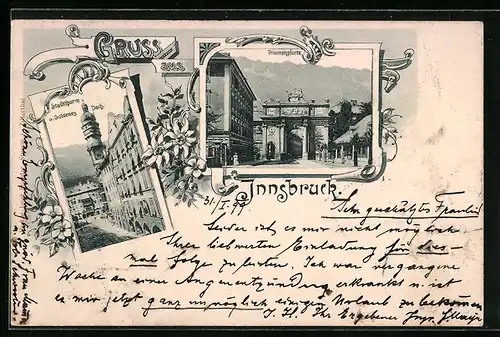 GRUSS
aus
Triumphpforte
Stadtthurm
u. Goldenes Dach.
Innsbruck.
31/I. 99
Sehr geschätztes Fräulein
Leider ist es mir nicht möglich
Ihrer liebwerten Einladung für dies-
mal folge zu leisten. Ich war vergangene
Woche an einer Augenentzündung erkrankt u. ist
es mir jetzt ganz unmöglich einigen Urlaub zu bekommen
I. H. Ihr Ergebener
Hohen Empfehlung an Frau Mama